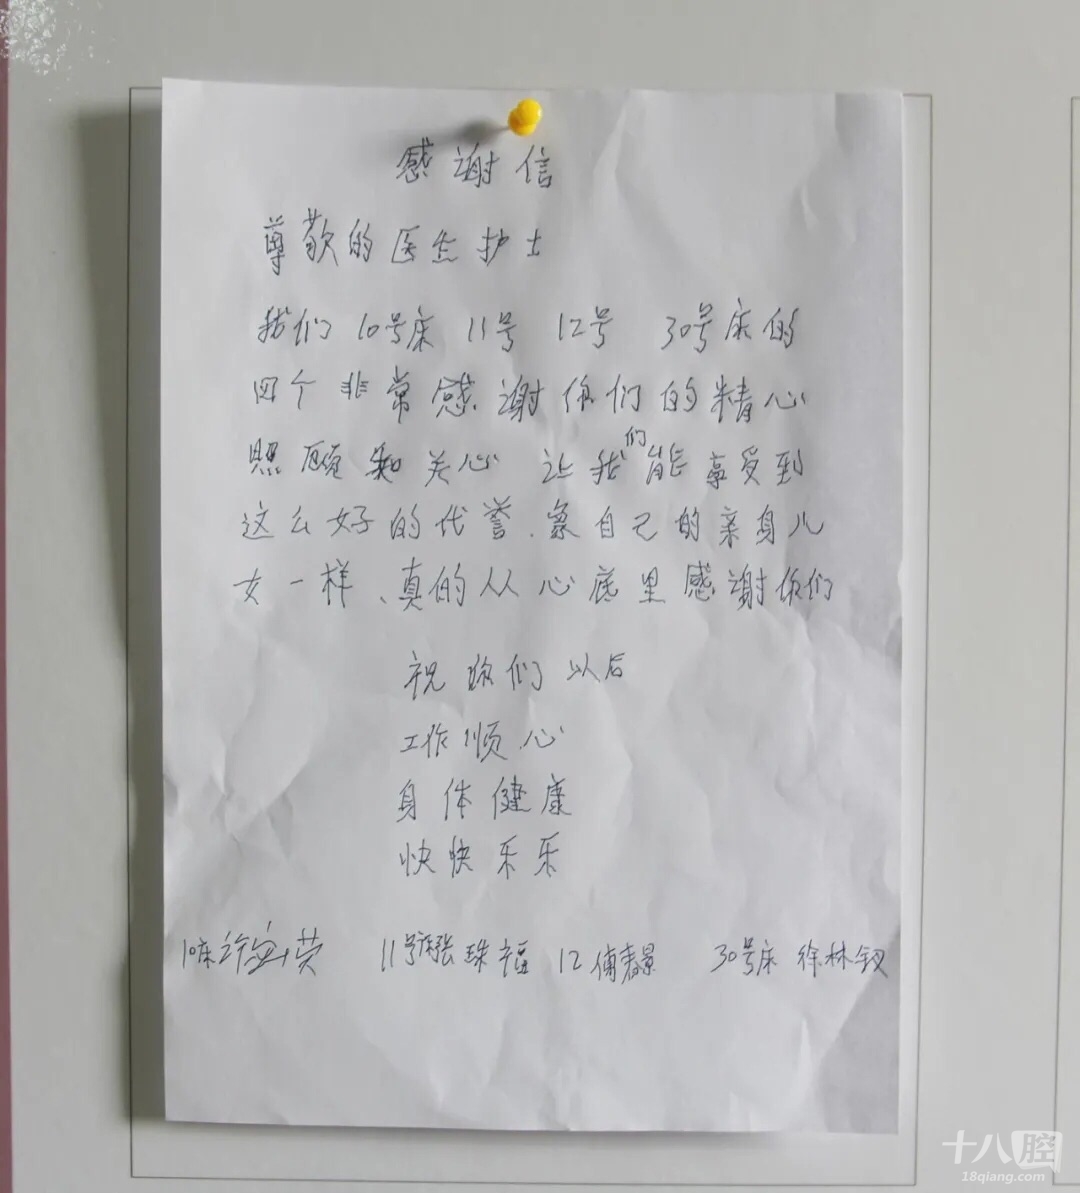 感谢信
尊敬的医生护士
我们10号床 11号 12号 30号床的
四个非常感谢你们的精心
照顾和关心 让我们能享受到
这么好的代誉.象自己的亲身儿
女一样、真的从心底里感谢你们
祝你们以后
工作顺心
身体健康
快快乐乐
10床 11号床张珠福 12傅春景 30号床 徐林钗
十八腔
18qiang.com